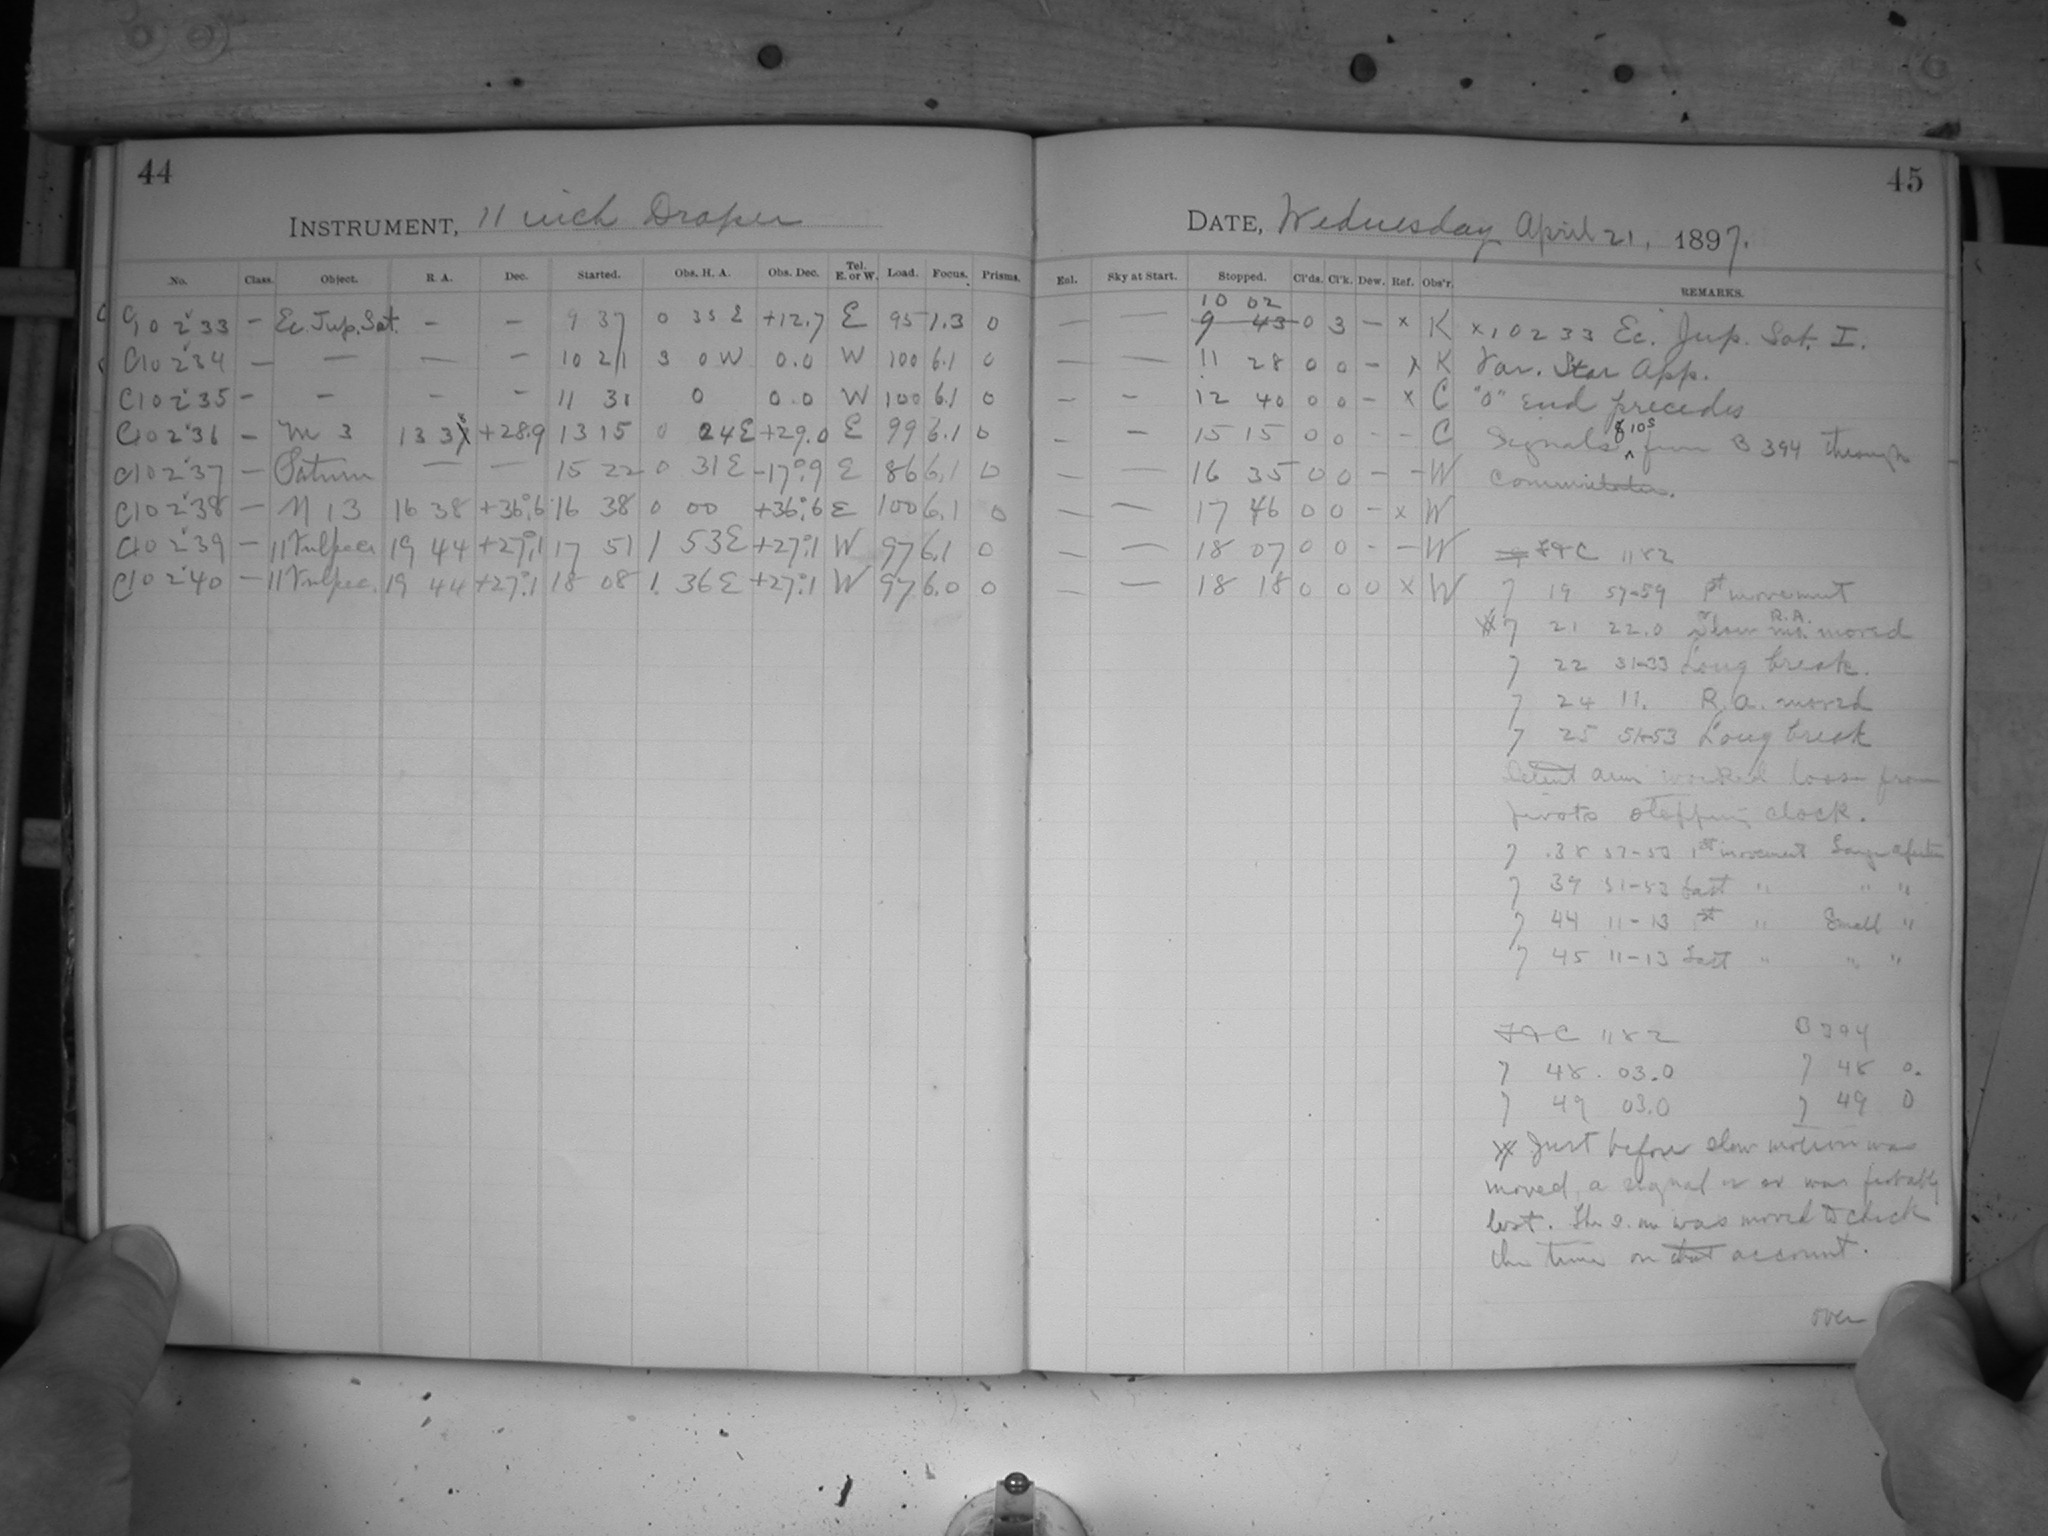 44
INSTRUMENT, 11 inch Draper
No. Class. Object. R. A. Dec. Started. Obs. H. A. Obs. Dec. Tel. E. or W. Load. Focus. Prisms.
C10233 – Ec. Jup. Sat. – – 9 37 0 35 E +12.7 E 95 1.3 0
C10234 – – – – 10 21 3 0 W 0.0 W 100 6.1 0
C10235 – – – – 11 31 0 0.0 W 100 6.1 0
C10236 – M 3 13 3 +28.9 13 15 0 24 E +29.0 E 99 6.1 0
C10237 – Saturn – – 15 22 0 31 E -17°.9 E 86 6.1 0
C10238 – M 13 16 38 +36°.6 16 38 0 00 +36°.6 E 100 6.1 0
C10239 – 11 Vulpec. 19 44 +27°.1 17 51 1 53 E +27°.1 W 97 6.1 0
C10240 – 11 Vulpec. 19 44 +27°.1 18 08 1 36 E +27°.1 W 97 6.0 0
45
DATE, Wednesday April 21, 1897.
Enl. Sky at Start. Stopped. Cl'ds. Cl'k. Dew. Ref. Obs'r. REMARKS.
10 02
– – 9 43 0 3 – x K x10233 Ec. Jup. Sat. I.
– – 11 28 0 0 – x K Var. Star App.
– – 12 40 0 0 – x C "0" end precedes
– – 15 15 0 0 – – C Signals 10s from B 394 through
– – 16 35 0 0 – – W
– – 17 46 0 0 – x W
– – 18 07 0 0 – – W F&C 1182
– – 18 18 0 0 0 x W 7 19 57-59 1st movement
7 21 22.0 Slow mo. R.A. moved
7 22 31-33 Long break.
7 24 11. R.A. moved
7 25 51-53 Long break
arm worked loose from
pivots stopping clock.
7 38 1st movement Large
7 39 51-53 Last " " "
7 44 11-13 1st " Small "
7 45 11-13 Last " " "
F&C 1182 B 394
7 48 03.0 7 48 0.
7 49 03.0 7 49 0
Just before slow motion was
moved, a signal or so was probably
lost. The s. m was moved to check
the time on that account.
over